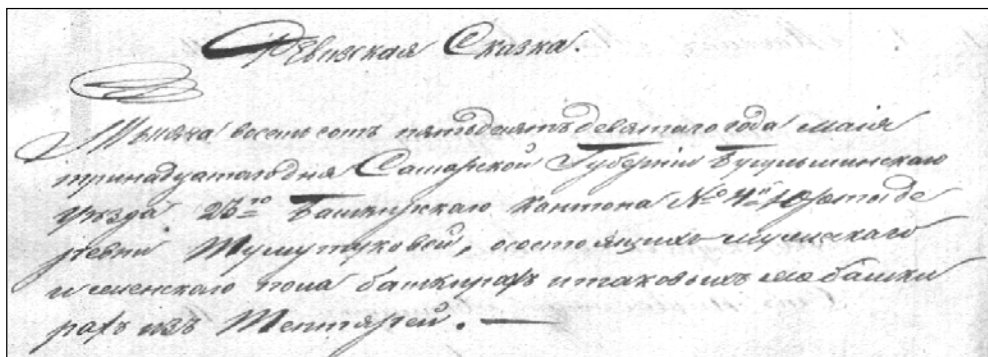 Ревизская Сказка.
Тысяча восемь сотъ пятьдесятъ девятаго года маія
тринадцатаго дня Самарской Губерніи Бугульминскаго
уѣзда 25го Башкирскаго Кантона № 4й юрты де
ревни Тумутуковой, о состоящихъ мужескаго
и женскаго пола башкирахъ и таковыхъ же башки
рахъ изъ Тептярей.